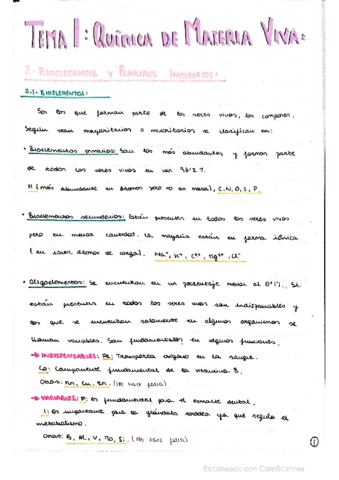 TEMA 1: QUÍMICA DE MATERIA VIVA:
2-BIOELEMENTOS y PRINCIPIOS INMEDIATOS:
2.1- BIOELEMENTOS:
Son los que forman parte de los seres vivos, los componen.
Según sean mayoritarios o minoritarios se clasifican en:
• Bioelementos primarios: Son los más abundantes y forman parte
de todos los seres vivos en un 96'2%.
H (más abundante en átomos pero no en masa), C, N, O, S, P.
• Bioelementos secundarios: Están presentes en todos los seres vivos
pero en menor cantidad. La mayoría están en forma iónica
(en iones, átomos de carga). Na⁺, K⁺, Ca²⁺, Mg²⁺, Cl⁻
• Oligoelementos: Se encuentran en un porcentaje menor al 0'1%. Si
están presentes en todos los seres vivos son indispensables y
los que se encuentran solamente en algunos organismos se
llaman variables. Son fundamentales en algunas funciones.
→ INDISPENSABLES: Fe: Transporta oxígeno en la sangre.
Co: Componente fundamental de la vitamina B.
Otros: Mn, Cu, Zn. (No hace falta)
→ VARIABLES: F: es fundamental para el esmalte dental.
I: Es importante para la glándula tiroidea ya que regula el
metabolismo.
Otros: B, Al, V, Mo, Si. (No hace falta)
1
Escaneado con CamScanner